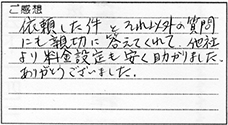 ご感想
依頼した件と、それ以外の質問
にも親切に答えてくれて、他社
より料金設定も安く助かりました。
ありがとうございました。